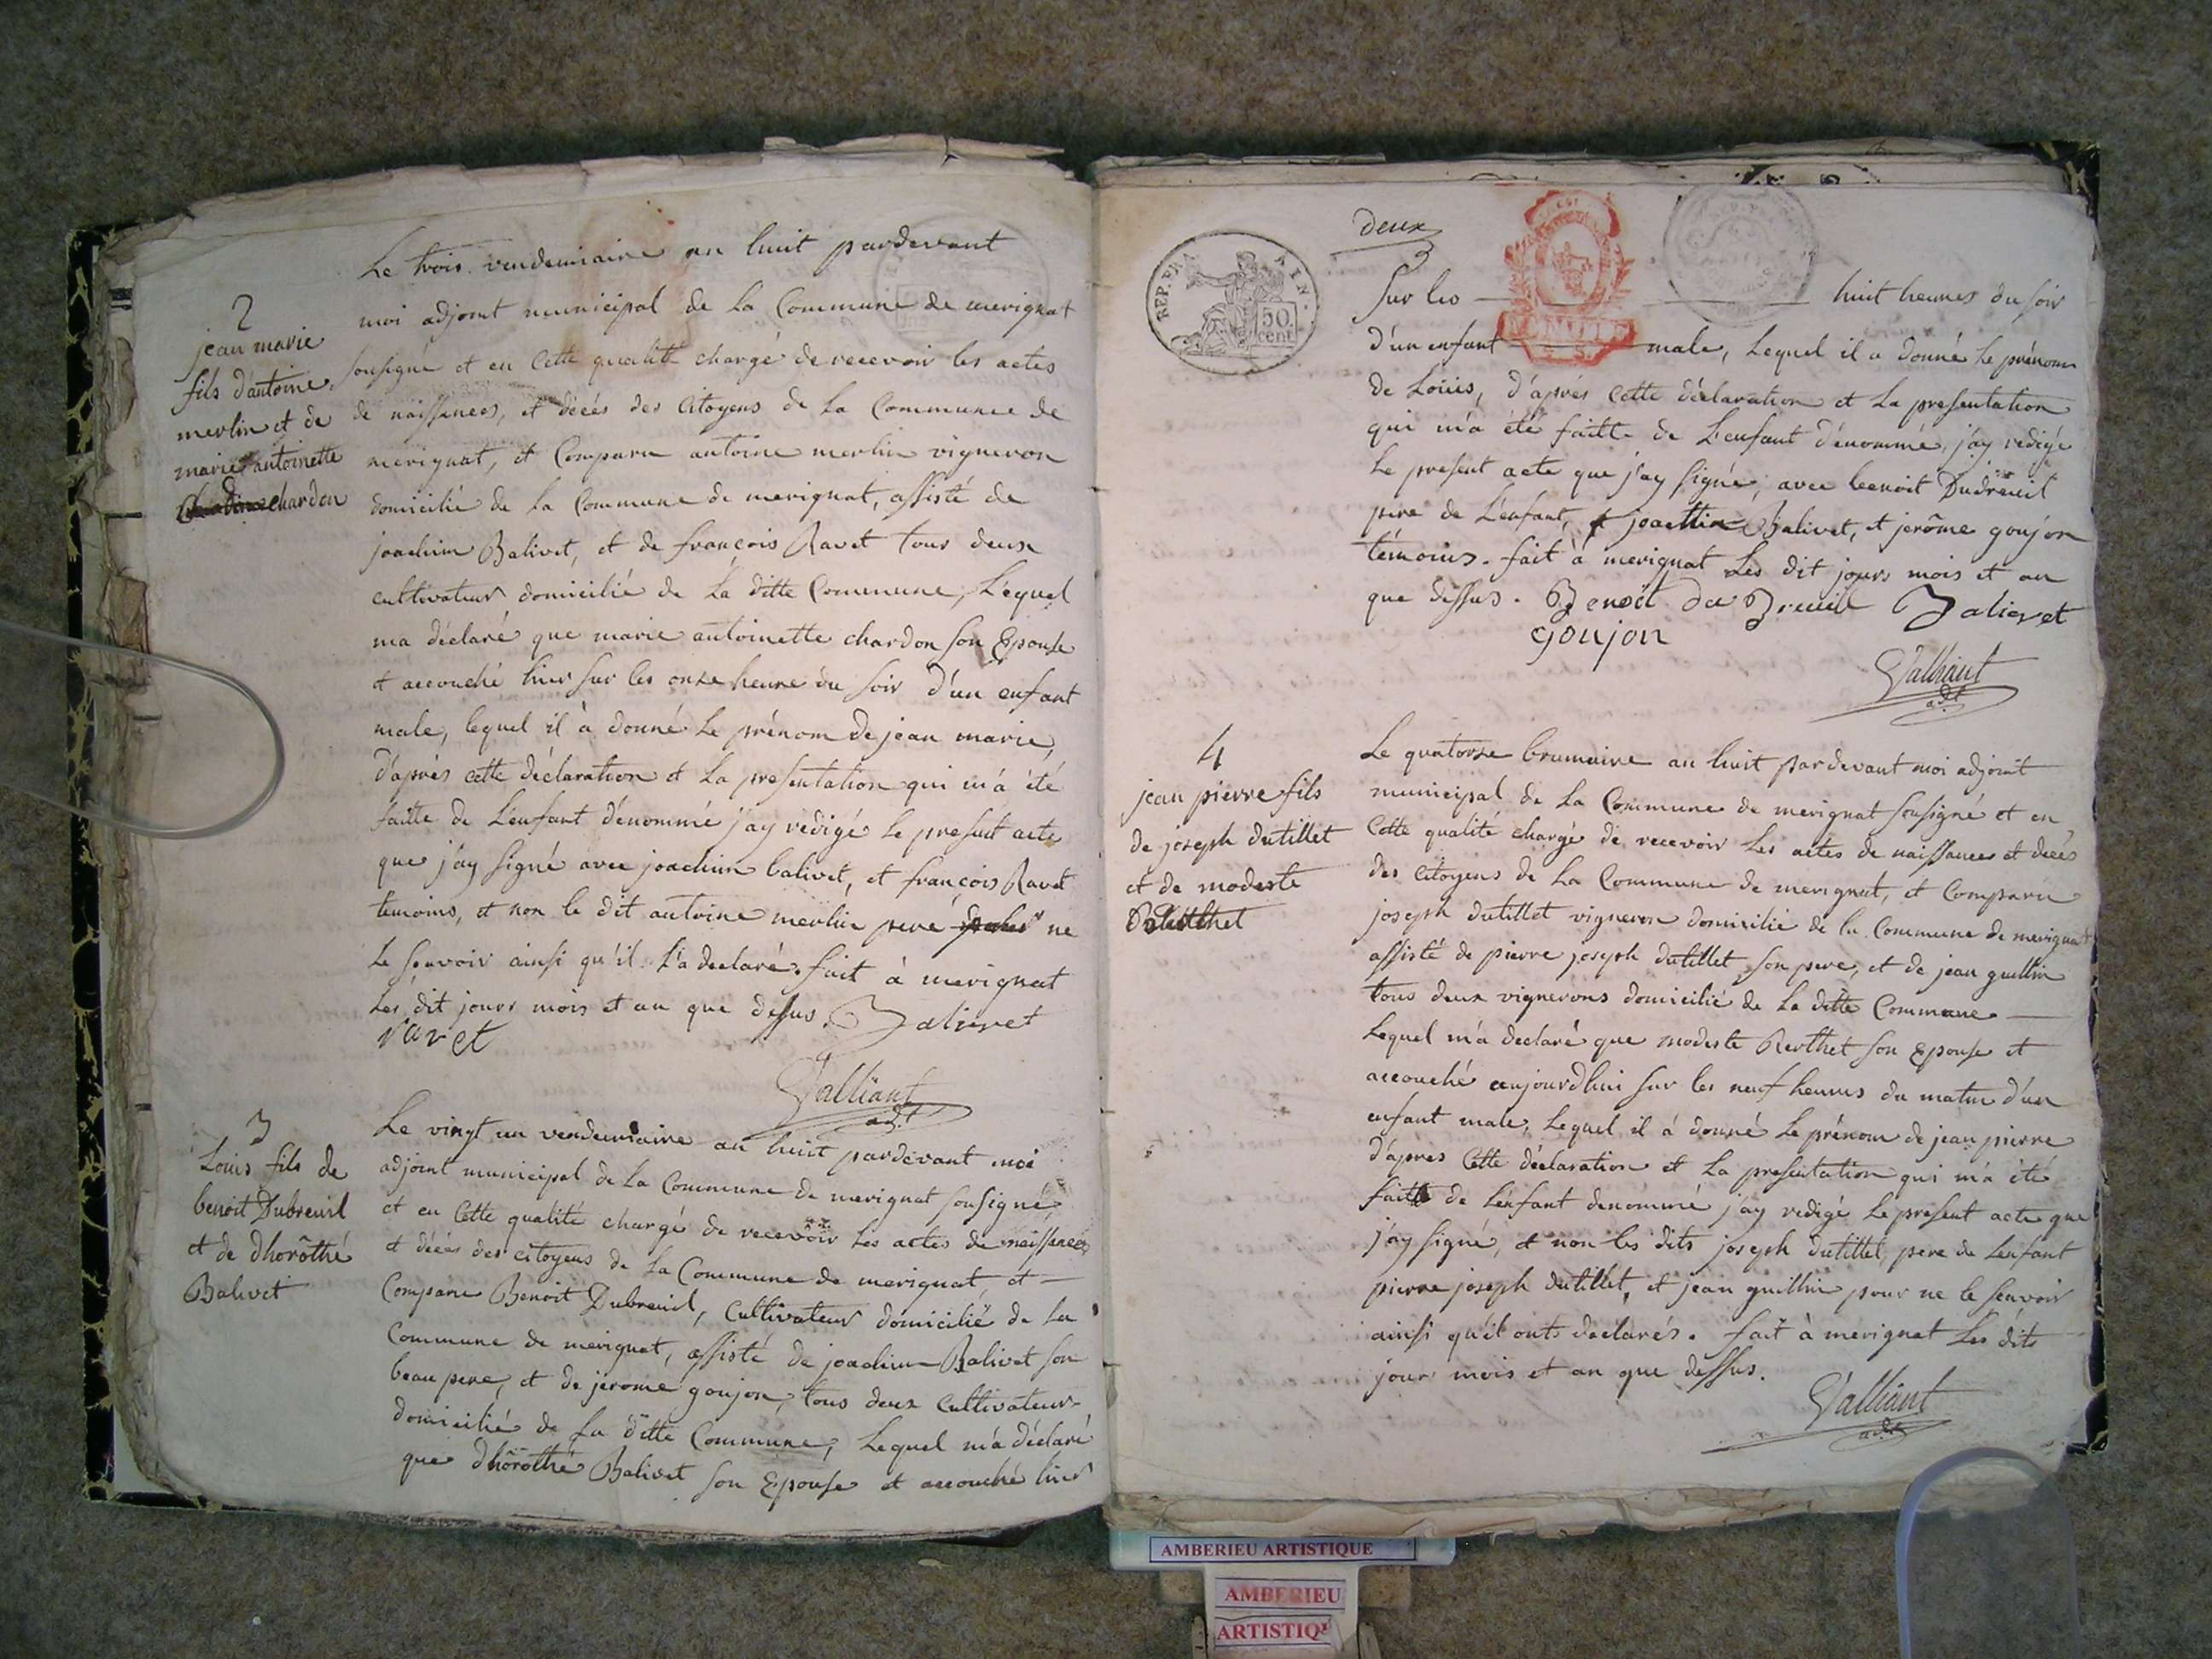 Le trois vendemiaire an huit pardevant
2
jean marie
fils d'antoine
merlin et de
marie antoinette
chardon
moi adjoint municipal de la Commune de merignat
sousigné et en Cette qualité chargé de recevoir les actes
de naissances, et décés des Citoyens de la Commune de
merignat, et Comparu antoine merlin vigneron
domicilié de la Commune de merignat, assisté de
joachim Balivet, et de françois Ravet tous deux
cultivateur domicilié de La ditte Commune, Lequel
ma déclaré que marie antoinette chardon son Epouse
et accouché hier sur les onze heure du soir d'un enfant
male, lequel il à donné Le prénom de jean marie,
d'après cette déclaration et La presentation qui m'a été
faitte de L'enfant dénommé j'ay rédigé le present acte
que j'ay signé avec joachim balivet, et françois Ravet
temoins, et non le dit antoine merlin pere ne
Le scavoir ainsi qu'il l'a declaré. fait à merignat
Les dit jours mois et an que dessus. Balivet
ravet
Valliant
adt
3
Louis fils de
benoit Dubreuil
et de dhorôthé
Balivet
Le vingt un vendemiaire an huit pardevant moi
adjoint municipal de La Commune de merignat sousigné
et en Cette qualité chargé de recevoir Les actes de naissances
et décés des citoyens de La Commune de merignat, et
Comparu Benoit Dubreuil, Cultivateur domicilié de La
Commune de merignat, assisté de joachim Balivet son
beau pere, et de jerome goujon, tous deux Cultivateur
domicilié de La ditte Commune, Lequel m'a déclaré
que dhorôthé Balivet son Epouse et accouché hier
deux
REP. FRA AIN.
50
cent
sur les huit heures du soir
d'un enfant male, Lequel il a donné Le prénom
de Loüis, d'aprés cette déclaration et La presentation
qui m'a été faitte de L'enfant dénommé, j'ay redigé
Le present acte que j'ay signé, avec benoit Dudreuil
pere de L'enfant, joachim Balivet, et jerôme goujon
témoins. fait à merignat Les dit jours mois et an
que dessus. Benoit du Breuil Balievet
goujon
Valliant
adt
4
jean pierre fils
de joseph dutillet
et de modeste
Le quatorze brumaire an huit pardevant moi adjoint
municipal de La Commune de merignat sousigné et en
Cette qualité chargé de recevoir Les actes de naissances et décés
des Citoyens de La Commune de merignat, et Comparu
joseph dutillet vigneron domicilié de la Commune de merignat
assisté de pierre joseph dutillet son pere, et de jean guillin
tous deux vignerons domicilié de La ditte Commune
Lequel m'a declaré que modeste Berthet son Epouse et
accouché aujourdhui sur les neuf heures du matin d'un
enfant male, Lequel il à donné Le prénom de jean pierre
d'apres Cette déclaration et La presentation qui m'a été
faitte de L'enfant denommé j'ay redigé Le present acte que
j'ay signé, et non les dits joseph dutillet pere de Lenfant
pierre joseph dutillet, et jean guillin pour ne le scavoir
ainsi qu'il onts declarés. fait à merignat Les dits
jour mois et an que dessus.
Valliant
adt
AMBERIEU ARTISTIQUE
AMBERIEU
ARTISTIQU